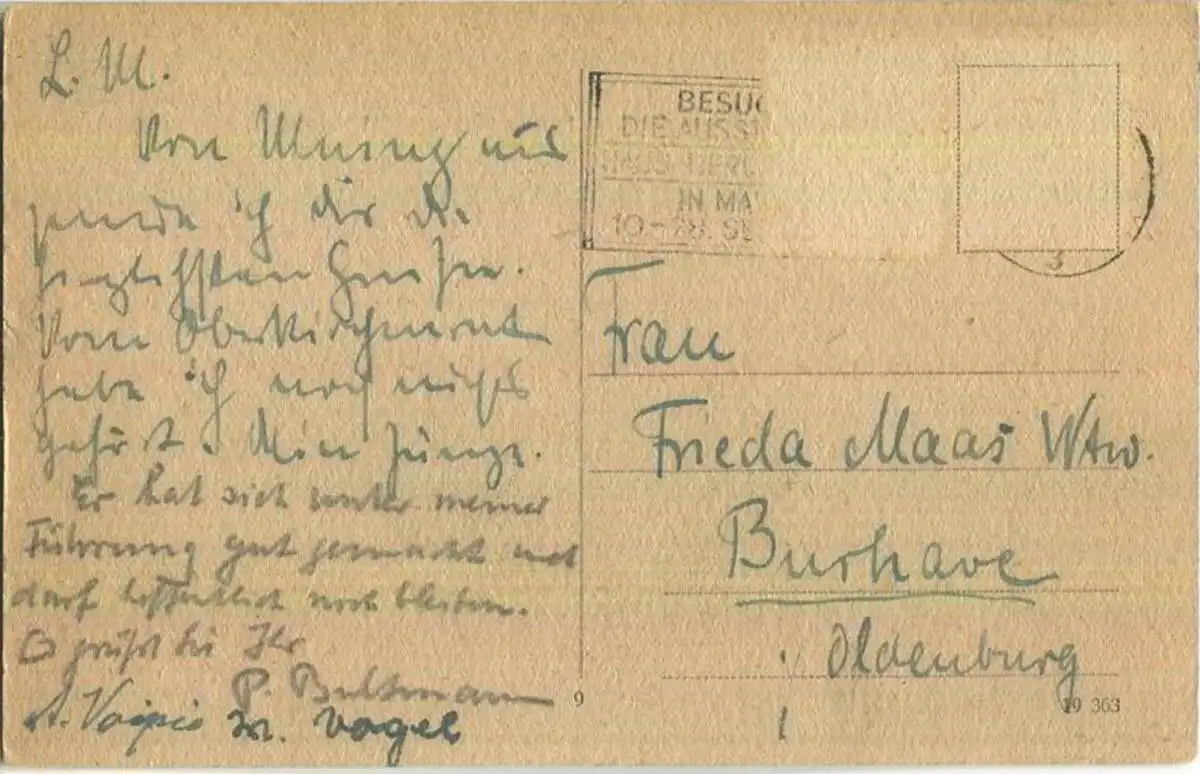 L. M.
Von Mainz aus
sende ich dir die
herzlichsten Grüsse.
Vom Oberkirchenrat
habe ich noch nichts
gehört. Dein Junge.
Er hat sich unter meiner
Führung gut gemacht und
darf hoffentlich noch bleiben.
Es grüßt Sie Ihr
P. Bultmann
A. M. Vogel
BESUC
DIE AUSST
IN MA
10.-28. SE
Frau
Frieda Maas Wtw.
Burhave
Oldenburg
9
19 363